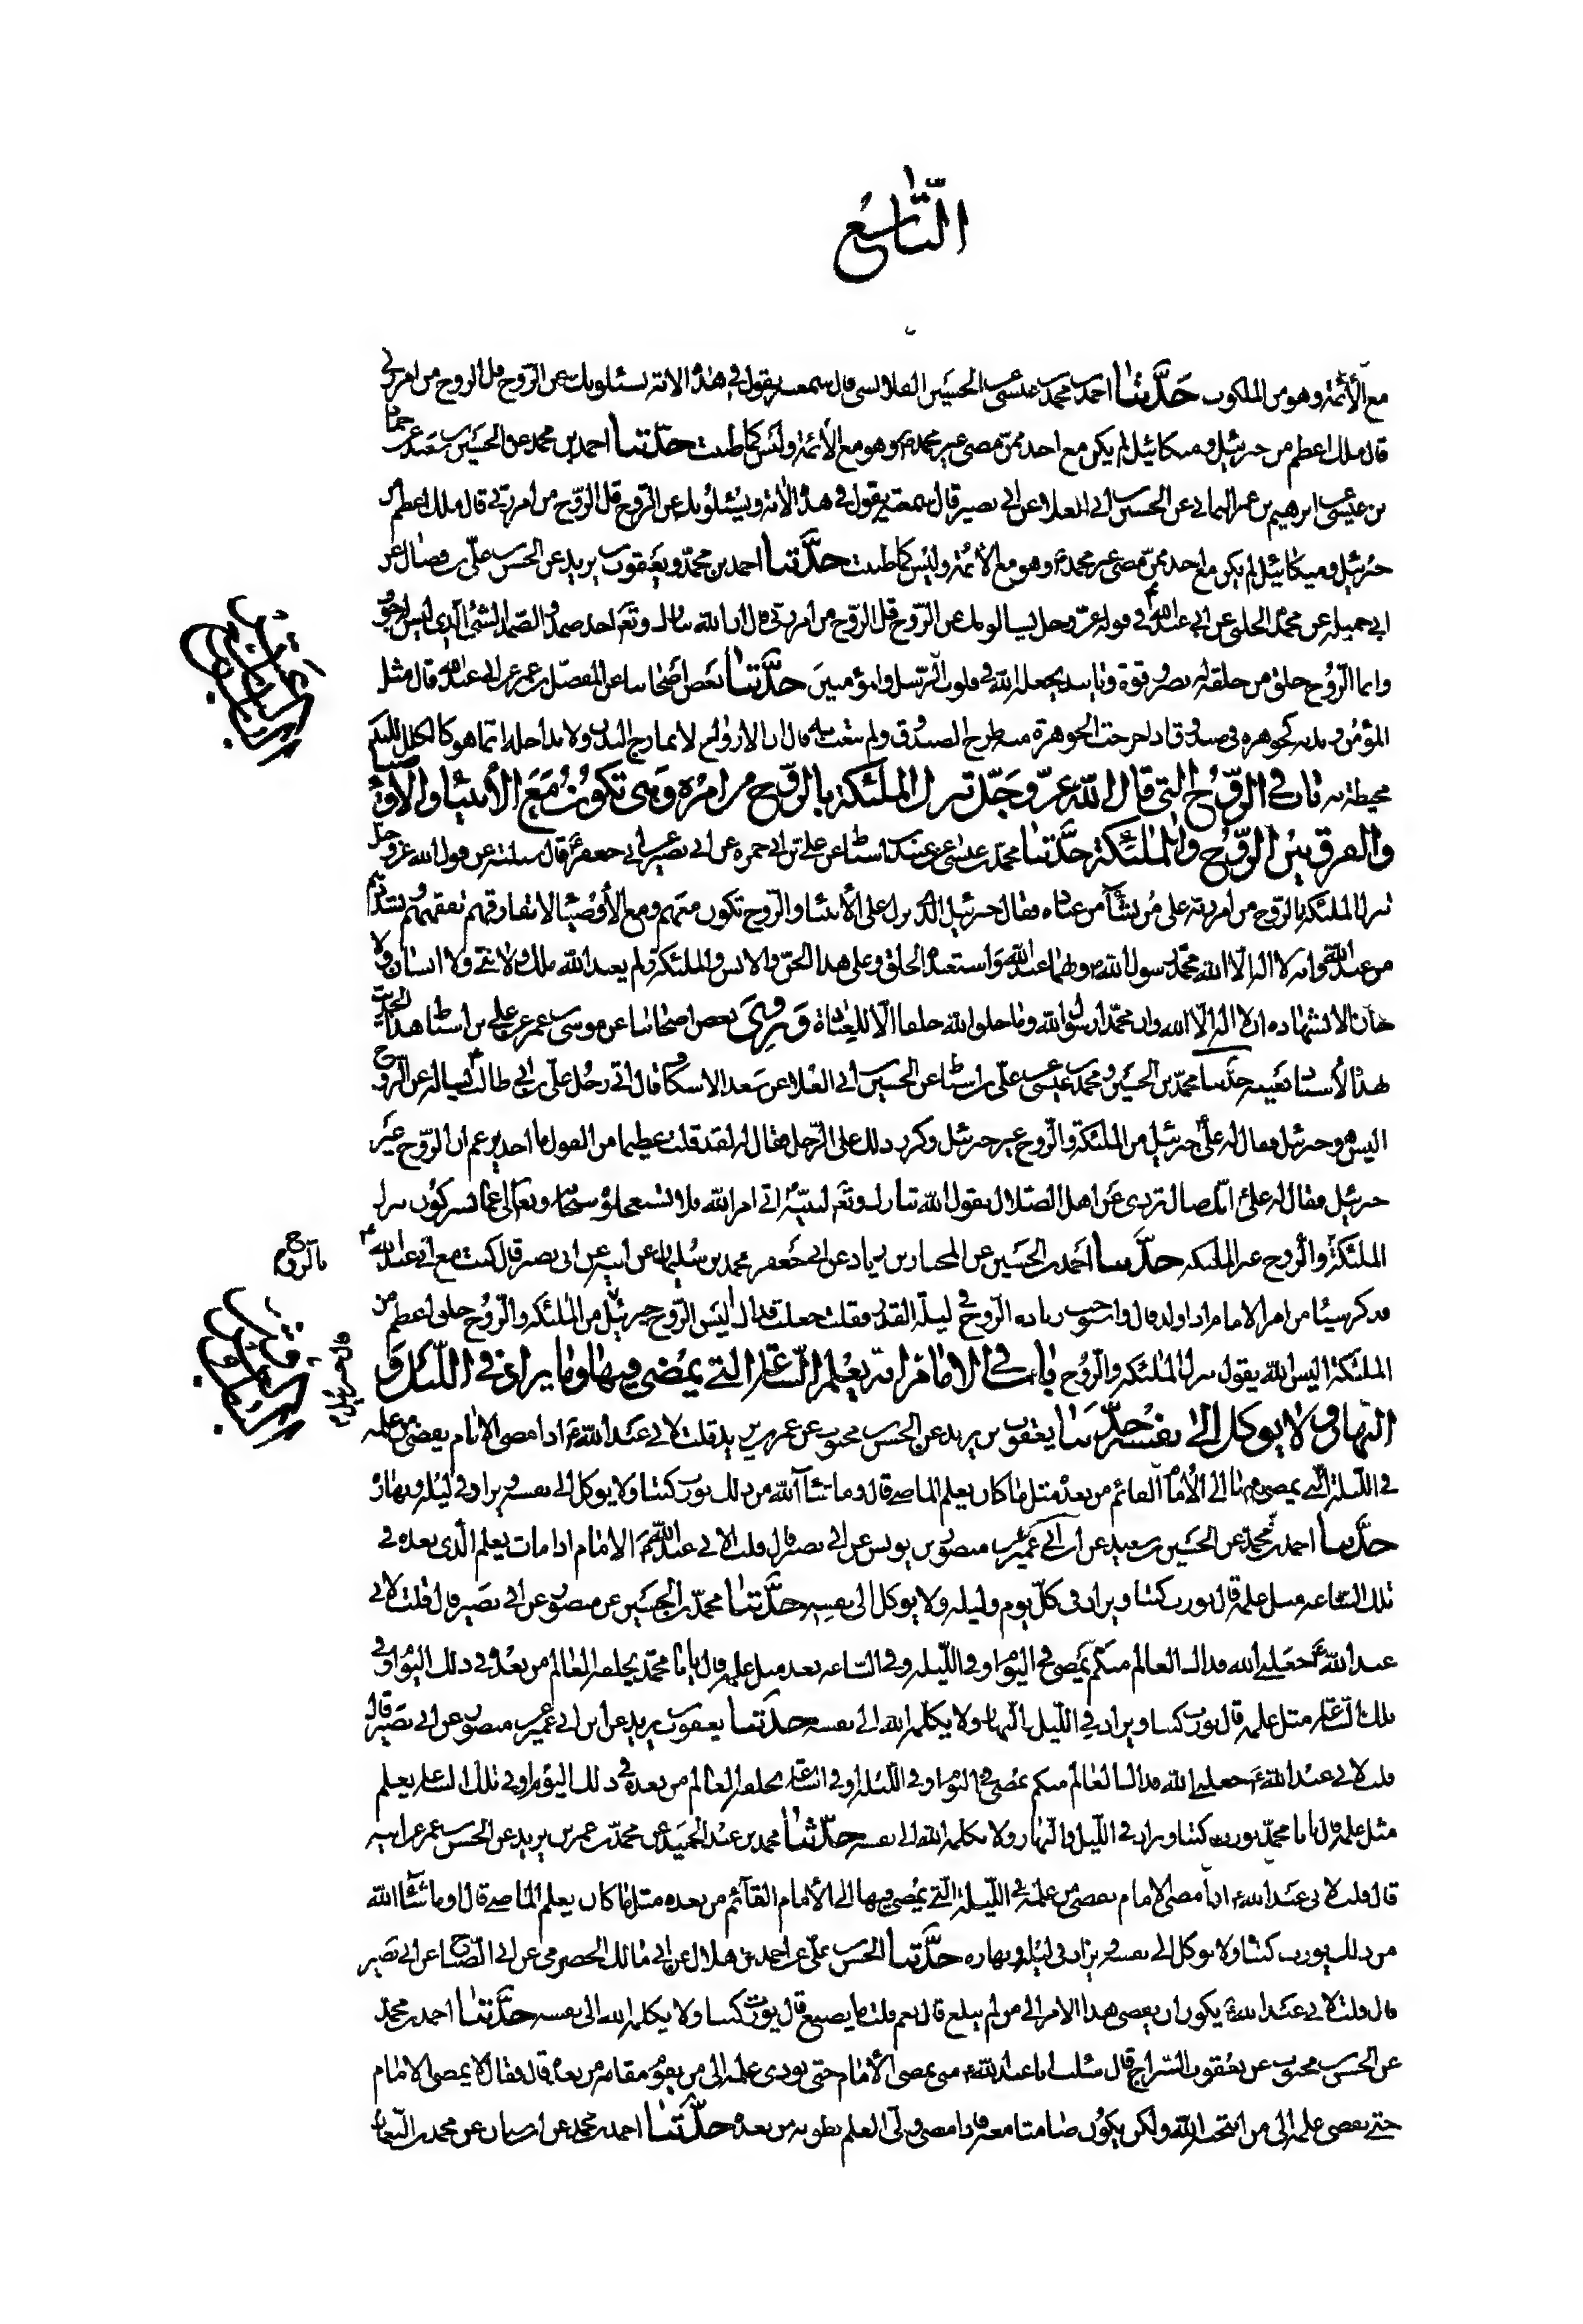 التاسع
مع الأئمة وهو من الملكوت حدثنا احمد بن محمد بن عيسى عن الحسين القلانسى قال سمعته يقول فى هذه الاية يسئلونك عن الروح قل الروح من امر ربى
قال ملك اعظم من جبرئيل وميكائيل لم يكن مع احد ممن مضى غير محمد ص وهو مع الأئمة وليس كما ظننت حدثنا احمد بن محمد عن الحسين بن سعيد عن حماد
بن عيسى عن ابرهيم بن عمر اليمانى عن الحسين بن ابى العلا عن ابى بصير قال سمعته يقول فى هذه الاية ويسئلونك عن الروح قل الروح من امر ربى قال ملك اعظم من
جبرئيل وميكائيل لم يكن مع احد ممن مضى غير محمد ص وهو مع الأئمة وليس كما ظننت حدثنا احمد بن محمد ويعقوب بن يزيد عن الحسن بن على بن فضال عن
ابى جميلة عن محمد الحلبى عن ابى عبد الله ع فى قوله عز وجل يسألونك عن الروح قل الروح من امر ربى قال ان الله تبارك وتع احد صمد والصمد الشئ الذى ليس له جوف
وانما الروح خلق من خلقه له بصر وقوة وتأييد يجعله الله فى قلوب الرسل والمؤمنين حدثنا بعض اصحابنا عن المفضل بن عمر عن ابى عبد الله ع قال مثل
المؤمن وبدنه كجوهرة فى صندوق اذا خرجت الجوهرة منه طرح الصندوق ولم تتعب به قال ان الارواح لا تمازج البدن ولا تداخله انما هو كالكلل للبدن
محيطة به باب فى الروح التى قال الله عز وجل تنزل الملئكة بالروح من امره وهى تكون مع الأنبياء والأوصياء
والفرق بين الروح والملئكة حدثنا محمد بن عيسى عن على بن اسباط عن على بن ابى حمزه عن ابى بصير عن ابى جعفر ع قال سئلته عن قول الله عز وجل
ينزل الملئكة بالروح من امر ربه على من يشآء من عباده فقال جبرئيل الذى نزل على الأنبياء والروح تكون معهم ومع الأوصيا لا تفارقهم تفقههم وتسددهم
من عند الله وانه لا اله الا الله محمد رسول الله ص وبهما عبد الله واستعبد الخلق وعلى هذا الجن والانس والملئكة ولم يعبد الله ملك ولا نبى ولا انسان ولا
جان الا بشهادة ان لا اله الا الله وان محمدا رسول الله وما خلق الله خلقا الا للعبادة وروى بعض اصحابنا عن موسى بن عمر عن على بن اسباط هذا الحديث
بهذا الأسناد بعينه حدثنا محمد بن الحسين ومحمد بن عيسى عن على بن اسباط عن الحسين بن ابى العلا عن سعد الاسكاف قال اتى رجل على بن ابى طالب ع يسأله عن الروح
اليس هو جبرئيل فقال له على ع جبرئيل من الملئكة والروح غير جبرئيل وكرر ذلك على الرجل فقال له لقد قلت عظيما من القول ما احد يزعم ان الروح غير
جبرئيل فقال له على ع انك ضال تروى عن اهل الضلال يقول الله تبارك وتع لنبيه ص اتى امر الله فلا تستعجلوه سبحانه وتعالى عما يشركون ينزل
الملئكة والروح غير الملئكة حدثنا احمد بن الحسين عن المختار بن زياد عن ابى جعفر محمد بن سليمان عن ابيه عن ابى بصير قال كنت مع ابى عبد الله ع
بالروح
فذكر شيئا من امر الامام اذا ولد قال واستوجب زيادة الروح فى ليلة القدر فقلت جعلت فداك اليس الروح جبرئيل من الملئكة والروح خلق اعظم من
الملئكة اليس الله يقول تنزل الملئكة والروح باب فى الامام انه يعلم الساعة التى يمضى فيها وما يزاد فى الليل و
النهار ولا يوكل الى نفسه حدثنا يعقوب بن يزيد عن الحسن بن محبوب عن عمر بن يزيد قلت لابى عبد الله ع اذا مضى الامام يفضى من علمه
فى الليلة التى يمضى فيها الى الأمام القائم من بعده مثل ما كان يعلم الماضى قال وما شآء الله من ذلك يورث كتبا ولا يوكل الى نفسه ويزاد فى ليله ونهاره
حدثنا احمد بن محمد عن الحسين بن سعيد عن ابن ابى عمير عن منصور بن يونس عن ابى بصير قال قلت لابى عبد الله ع الامام اذا مات يعلم الذى بعده فى
تلك الساعة مثل علمه قال يورث كتبا ويزاد فى كل يوم وليلة ولا يوكل الى نفسه حدثنا محمد بن الحسين عن منصور عن ابى بصير قال قلت لابى
عبد الله ع جعلنى الله فداك العالم منكم يمضى فى اليوم او فى الليلة وفى الساعة بعده مثل علمه قال يا با محمد يخلفه العالم من بعده فى ذلك اليوم او فى
تلك الساعة مثل علمه قال يورث كتبا ويزاد فى الليل والنهار ولا يكله الله الى نفسه حدثنا يعقوب بن يزيد عن ابن ابى عمير عن منصور عن ابى بصير قال
قلت لابى عبد الله ع جعلنى الله فداك العالم منكم يمضى فى اليوم او فى الليلة او فى الساعة يخلفه العالم من بعده فى ذلك اليوم او فى تلك الساعة يعلم
مثل علمه قال يا با محمد يورث كتبا ويزاد فى الليل والنهار ولا يكله الله الى نفسه حدثنا محمد بن عبد الحميد عن محمد بن عمر بن يزيد عن الحسن بن عمر عن ابيه
قال قلت لابى عبد الله ع اذا مضى الامام يفضى من علمه فى الليلة التى يمضى فيها الى الأمام القآئم من بعده مثل ما كان يعلم الماضى قال او ما شآء الله
من ذلك يورث كتبا ولا يوكل الى نفسه ويزاد فى ليله ونهاره حدثنا الحسن بن على عن احمد بن هلال عن ابى مالك الحضرمى عن ابى الصباح عن ابى بصير
قال قلت لابى عبد الله ع يكون ان يفضى هذا الامر الى من لم يبلغ قال نعم قلت ما يصنع قال يورث كتبا ولا يكله الله الى نفسه حدثنا احمد بن محمد
عن الحسن بن محبوب عن يعقوب السراج قال سئلت ابا عبد الله ع متى يمضى الأمام حتى يودى علمه الى من يقوم مقامه من بعده قال فقال لا يمضى الامام
حتى يفضى علمه الى من انتجبه الله ولكن يكون صامتا معه فاذا مضى ولى العلم نطق به من بعده حدثنا احمد بن محمد عن ابن سنان عن محمد بن النعمان